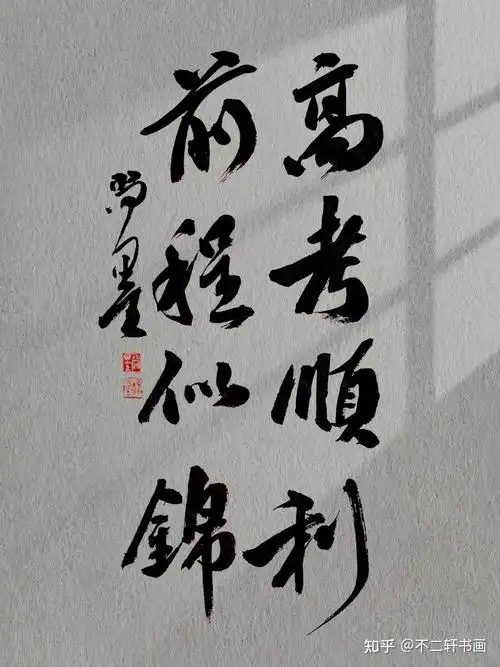 高考順利
前程似錦
知乎 @不二轩书画